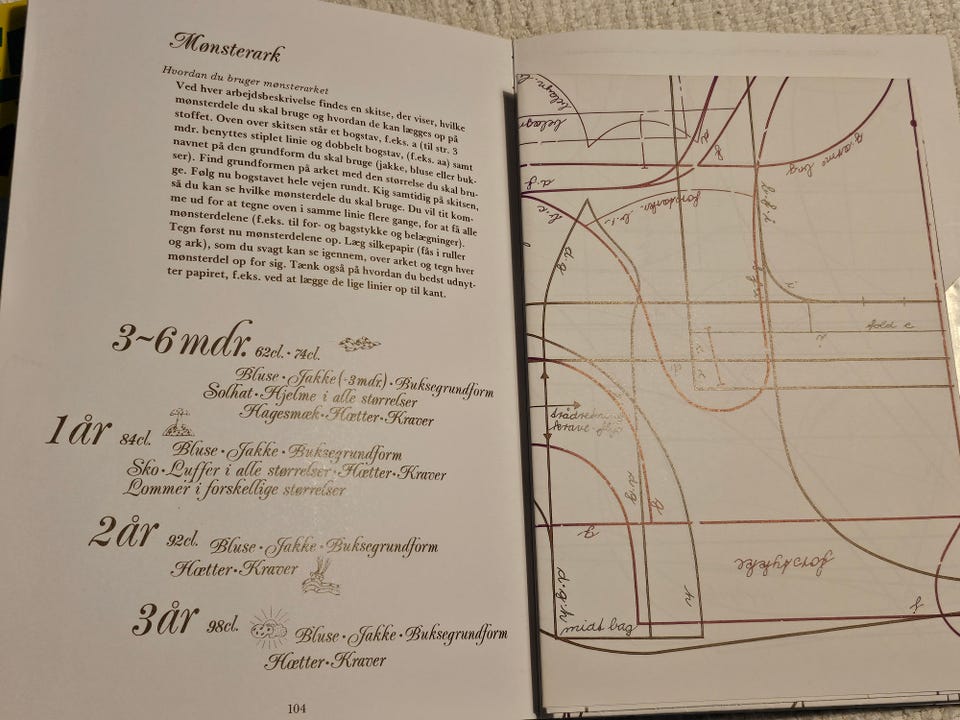 Mønsterark
Hvordan du bruger mønsterarket
Ved hver arbejdsbeskrivelse findes en skitse, der viser, hvilke
mønsterdele du skal bruge og hvordan de kan lægges op på
stoffet. Oven over skitsen står et bogstav, f.eks. a (til str. 3
mdr. benyttes stiplet linie og dobbelt bogstav, (f.eks. aa) samt
navnet på den grundform du skal bruge (jakke, bluse eller buk-
ser). Find grundformen på arket med den størrelse du skal bru-
ge. Følg nu bogstavet hele vejen rundt. Kig samtidig på skitsen,
så du kan se hvilke mønsterdele du skal bruge. Du vil tit kom-
me ud for at tegne oven i samme linie flere gange, for at få alle
mønsterdelene (f.eks. til for- og bagstykke og belægninger).
Tegn først nu mønsterdelene op. Læg silkepapir (fås i ruller
og ark), som du svagt kan se igennem, over arket og tegn hver
mønsterdel op for sig. Tænk også på hvordan du bedst udnyt-
ter papiret, f.eks. ved at lægge de lige linier op til kant.
3~6 mdr. 62cl. · 74cl.
Bluse · Jakke (-3mdr.) · Buksegrundform
Solhat · Hjelme i alle størrelser
Hagesmæk · Hætter · Kraver
1år 84cl.
Bluse · Jakke · Buksegrundform
Sko · Luffer i alle størrelser · Hætter · Kraver
Lommer i forskellige størrelser
2år 92cl. Bluse · Jakke · Buksegrundform
Hætter · Kraver
3år 98cl. Bluse · Jakke · Buksegrundform
Hætter · Kraver
104
belægn. b.
belagn
d
f
ærme bag
d.f.
b.c
forstærkn. b.i.
b.f.i
d.g
fold c
i
d
trådretning
krave
d.g
g
g
forstykke
d.g.h
h
f
midt bag